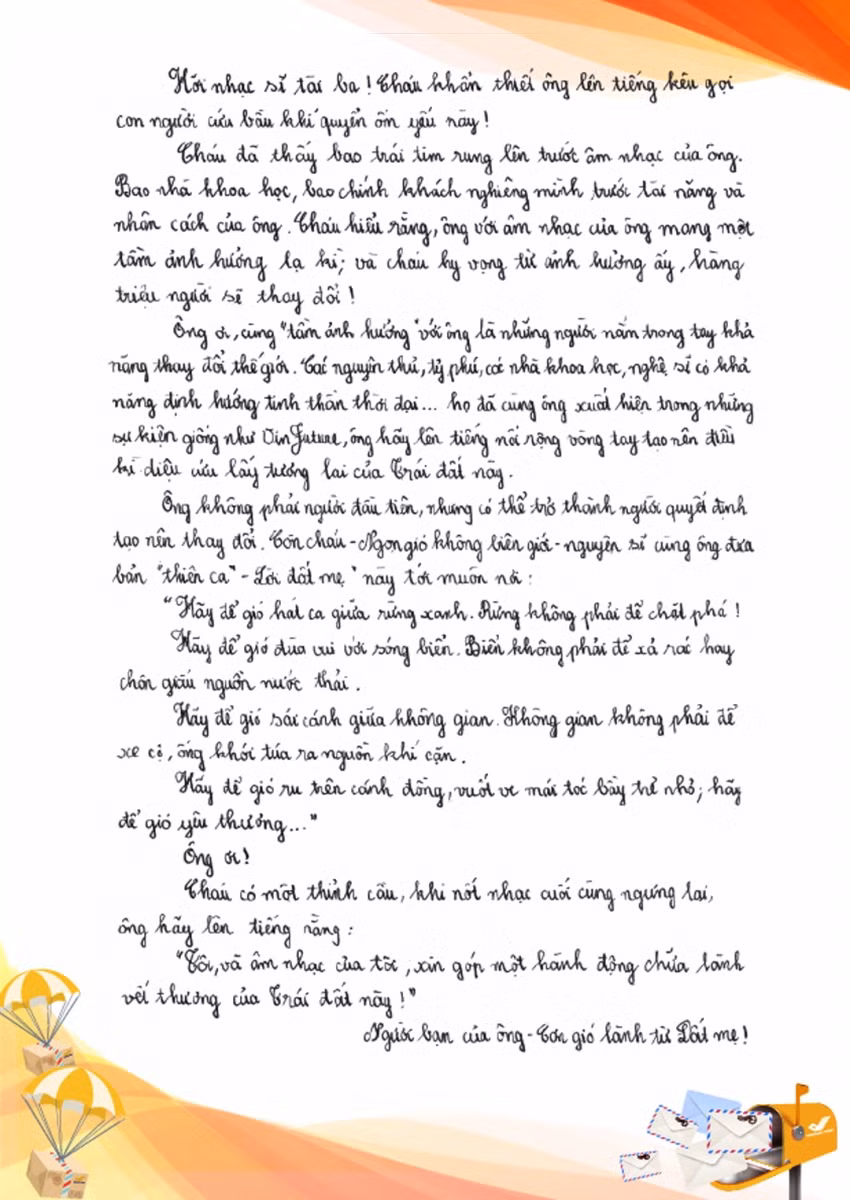 Hỡi nhạc sĩ tài ba! Cháu khẩn thiết ông lên tiếng kêu gọi
con người cứu bầu khí quyển ốm yếu này!
Cháu đã thấy bao trái tim rung lên trước âm nhạc của ông.
Bao nhà khoa học, bao chính khách nghiêng mình trước tài năng và
nhân cách của ông. Cháu hiểu rằng, ông với âm nhạc của ông mang một
tầm ảnh hưởng lạ kì; và cháu hy vọng từ ảnh hưởng ấy, hàng
triệu người sẽ thay đổi!
Ông ơi, cùng "tầm ảnh hưởng" với ông là những người nắm trong tay khả
năng thay đổi thế giới. Các nguyên thủ, tỷ phú, các nhà khoa học, nghệ sĩ có khả
năng định hướng tinh thần thời đại... họ đã cùng ông xuất hiện trong những
sự kiện giống như VinFuture, ông hãy lên tiếng nối rộng vòng tay tạo nên điều
kì diệu cứu lấy tương lai của Trái đất này.
Ông không phải người đầu tiên, nhưng có thể trở thành người quyết định
tạo nên thay đổi. Còn cháu - Ngọn gió không biên giới - nguyện sĩ cùng ông đưa
bản "thiên ca" - Lời đất mẹ" này tới muôn nơi:
"Hãy để gió hát ca giữa rừng xanh. Rừng không phải để chặt phá!
Hãy để gió đùa vui với sóng biển. Biển không phải để xả rác hay
chôn giấu nguồn nước thải.
Hãy để gió sải cánh giữa không gian. Không gian không phải để
xe cộ, ống khói túa ra nguồn khí cặn.
Hãy để gió ru trên cánh đồng, vuốt ve mái tóc bầy trẻ nhỏ; hãy
để gió yêu thương..."
Ông ơi!
Cháu có một thỉnh cầu, khi nốt nhạc cuối cùng ngưng lại,
ông hãy lên tiếng rằng:
"Tôi, và âm nhạc của tôi, xin góp một hành động chữa lành
vết thương của Trái đất này!"
Người bạn của ông - Cơn gió lành từ Đất mẹ!